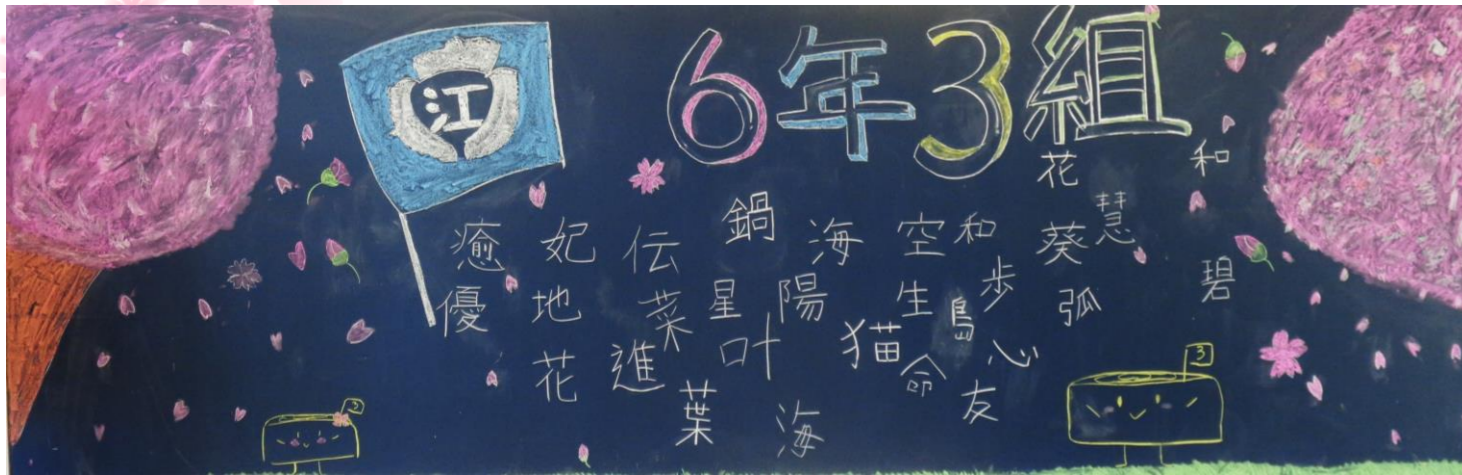 江
6年3組
花 和
癒 妃 伝 鍋 海 空 和 葵 慧
優 地 菜 星 陽 生 歩 弧 碧
花 進 叶 猫 命 鳥 心
葉 海 友
3
3